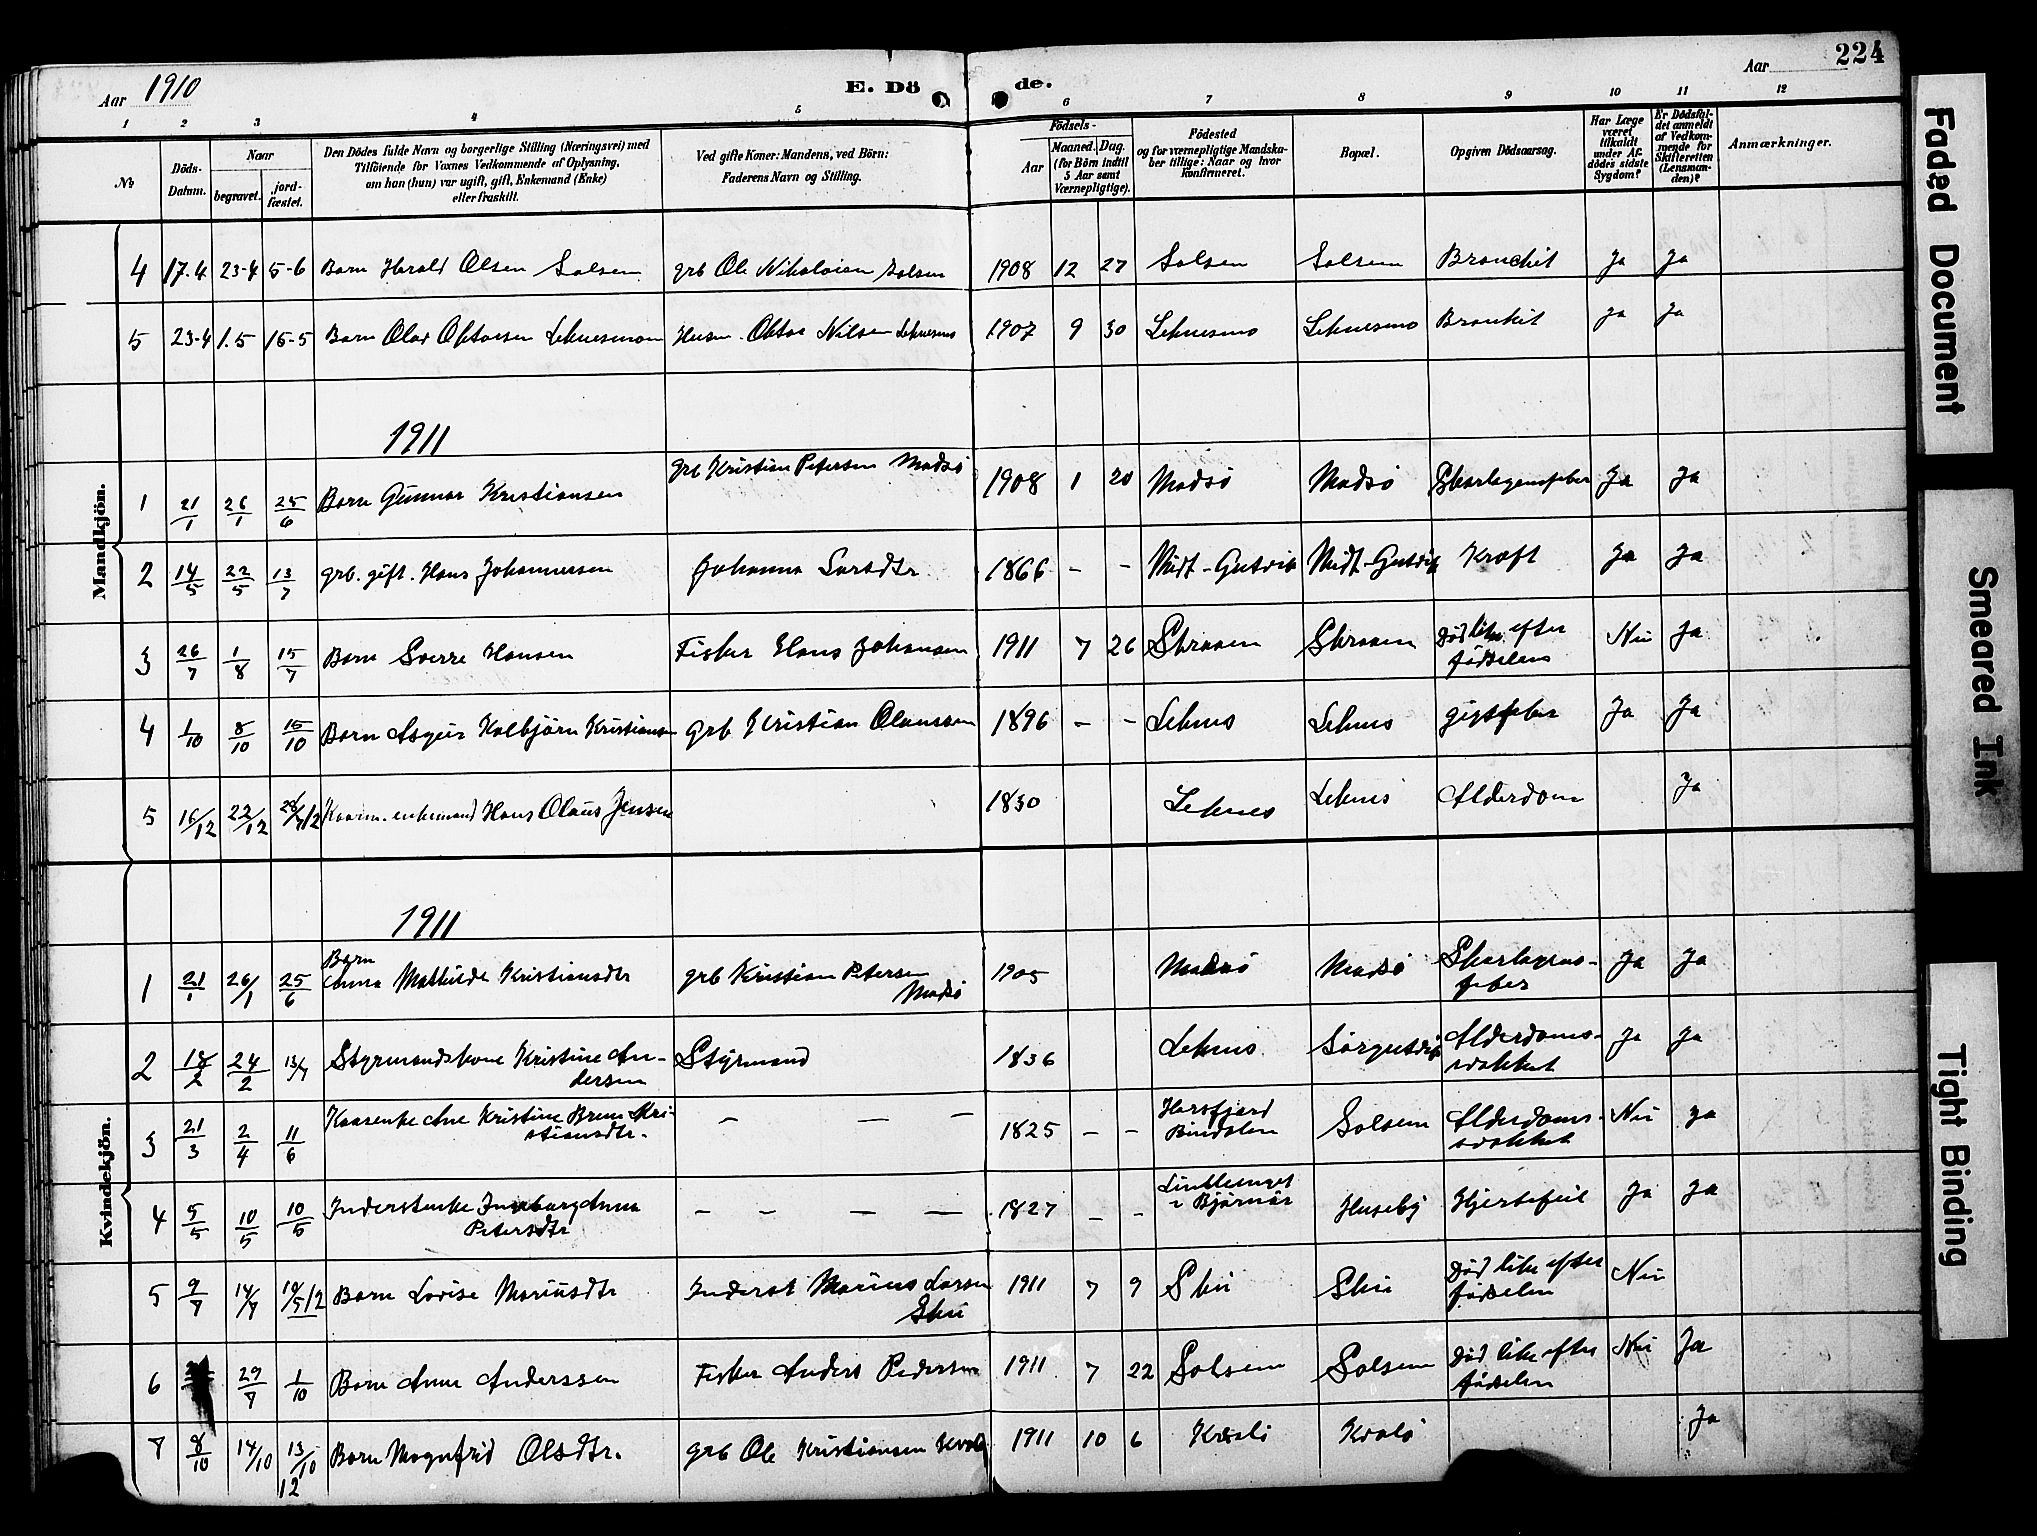 Aar 1910
E. Döde.
Aar
224
1 2 3 4 5 6 7 8 9 10 11 12
No
Döds-Datum.
Naar
begravet.
jord-fæstet.
Den Dödes fulde Navn og borgerlige Stilling (Næringsvei) med
Tilföiende for Voxnes Vedkommende af Oplysning,
om han (hun) var ugift, gift, Enkemand (Enke)
eller fraskilt.
Ved gifte Koner: Mandens, ved Börn:
Faderens Navn og Stilling.
Födsels-
Aar
Maaned. Dag.
(for Börn indtil
5 Aar samt
Værnepligtige).
Födested
og for værnepligtige Mandska-
ber tillige: Naar og hvor
konfirmeret.
Bopæl.
Opgiven Dödsaarsag.
Har Læge
været
tilkaldt
under Af-
dödes sidste
Sygdom?
Er Dödsfal-
det anmeldt
af Vedkom-
mende for
Skifteretten
(Lensman-
den)?
Anmærkninger.
Mandkjön.
4 17.4 23-4 5-6 Barn Harald Olsen Solsem grb Ole Nikolaisen Solsem 1908 12 27 Solsem Solsem Bronchit Ja Ja
5 23-4 1.5 15-5 Barn Olav Oktavsen Leknesmoen Husm. Oktav Nilsen Leknesmo 1907 9 30 Leknesmo Leknesmo Bronkit Ja Ja
1911
1 21/1 26/1 25/6 Barn Gunnar Kristiansen grb Kristian Petersen Madsö 1908 1 20 Madsö Madsö Skarlagensfeber Ja Ja
2 14/5 22/5 13/7 grb. gift. Hans Johannessen Johanna Larsdtr 1866 - - Midt-Gutvik Midt-Gutvik Kræft Ja Ja
3 26/7 1/8 15/7 Barn Sverre Hansen Fisker Hans Johansen 1911 7 26 Skraaen Skraaen Död like efter
födselen Nei Ja
4 1/10 8/10 15/10 Barn Asgeir Kolbjörn Kristiansen grb Kristian Olaussen 1896 - - Leknes Leknes gigtfeber Ja Ja
5 16/12 22/12 Kaarm. enkemand Hans Olaus Jensen 1830 Leknes Leknes Alderdom Ja
Kvindekjön.
1911
1 21/1 26/1 25/6 Barn
Anna Mathilde Kristiansdtr grb Kristian Petersen
Madsö 1905 Madsö Madsö Skarlagens-
feber Ja Ja
2 18/2 24/2 13/7 Styrmandskone Kristine An-
dersen Styrmand 1836 Leknes Sörgutvik Alderdoms-
svækket Ja Ja
3 21/3 2/4 11/6 Kaarenke Ane Kristine Brun Kri-
stiansdtr. - - - 1825 - - Horsfjord
Bindalen Solsem Alderdoms-
svakket Nei Ja
4 5/5 10/5 10/5 Inderstenke Ingeborg Anna
Petersdtr - - - - 1827 - - i Bjørnör Huseby Hjertefeil Ja Ja
5 9/7 14/7 Barn Lovise Mariusdtr Inderst Marius Larsen
Skei 1911 7 9 Skei Skei Död like efter
födselen Nei
6 29/7 1/10 Barn Anna Anderssen Fisker Anders Pedersen 1911 7 22 Solsem Solsem Död like efter
födselen Nei Ja
7 8/10 14/10 13/10 12 Barn Magnfrid Olsdtr. grb Ole Kristiansen 1911 10 6 Kvalö Kvalö Ja
Faded Document
Smeared Ink
Tight Binding